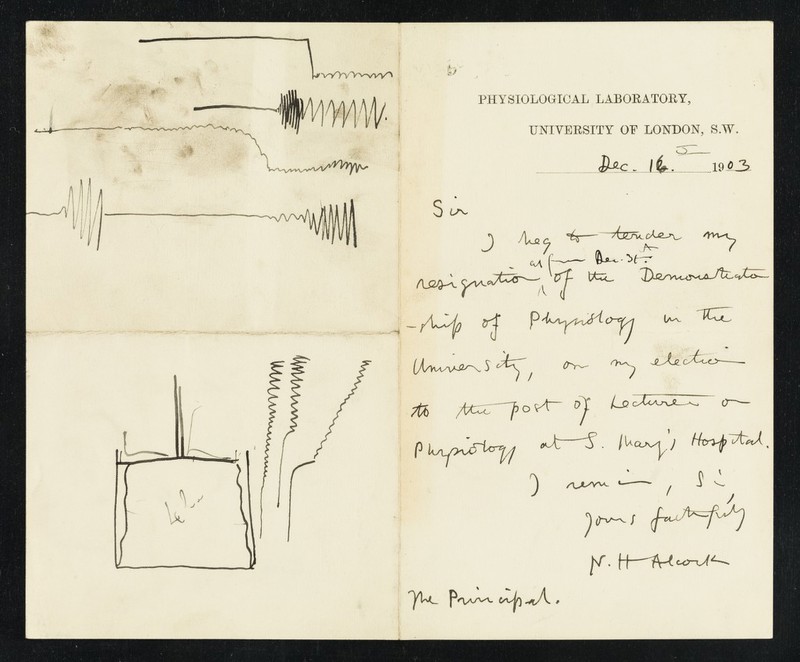 PHYSIOLOGICAL LABORATORY,
UNIVERSITY OF LONDON, S.W.
Dec. 16. 1903
Sir
I beg to tender my
resignation as from Dec. 31st of the Demonstrator
-ship of Physiology in the
University, on my election
to the post of Lecturer on
Physiology at S. Mary's Hospital.
I remain, Sir,
Yours faithfully
N. H Alcock
The Principal.